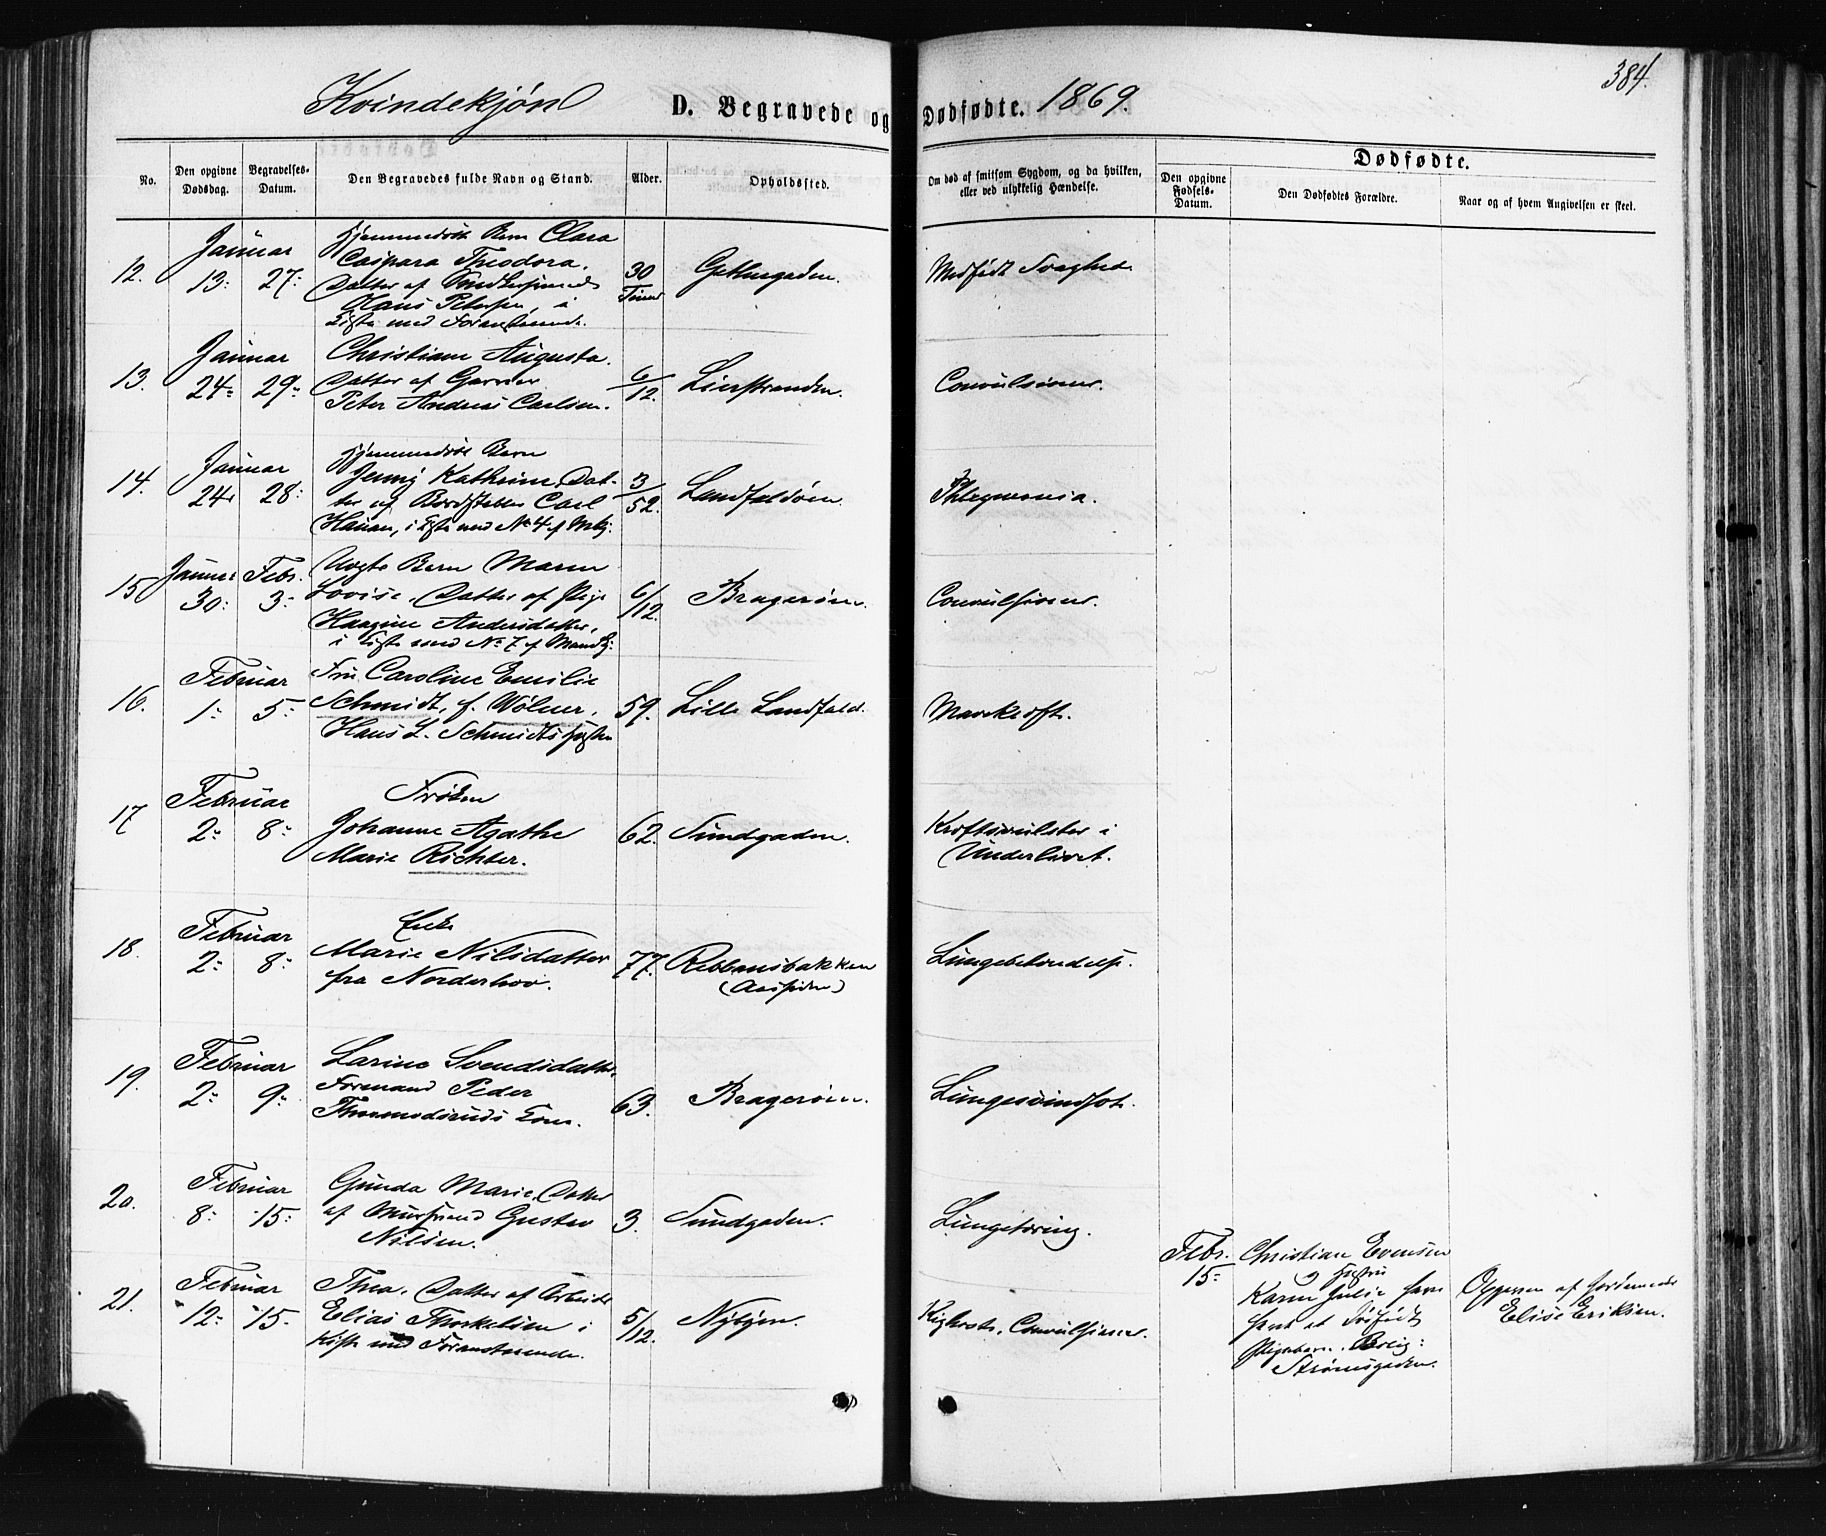 384.
Kvindekjøn D. Begravede og Dødfødte. 1869.
No.
Den opgivne Dødsdag.
Begravelses-Datum.
Den Begravedes fulde Navn og Stand.
Alder.
Opholdssted.
Om død af smitsom Sygdom, og da hvilken,
eller ved ulykkelig Hændelse.
Dødfødte.
Den opgivne Fødsels-Datum.
Den Dødfødtes Forældre.
Naar og af hvem Angivelsen er skeet.
12. Januar 13: 27:
Hjemmedøbt Barn Clara
Caspara Theodora,
Datter af
Hans Petersen, i
Kiste med Foranstaaende.
30 Timer
Medfødt Svaghed
13. Januar 24: 29:
Christiane Augusta.
Datter af Garver
Peter Andreas Carlsen.
6/12.
Lierstranden.
Convulsioner.
14. Januar 24: 28:
Hjemmedøbt Barn
Jenny Kathrine, Dat-
ter af Carl
Hansen, i Kiste med No 4 f Mkj:
3/52.
Landfaldøen.
Phlegmonia.
15 Januar 30: Febr. 3:
Uægte Barn Maren
Lovise, Datter af Pige
Haagine Andersdatter,
i Kiste med No 7 f Mandkj:
6/12.
Bragerøen.
Convulsioner.
16. Februar 1: 5:
Fru Caroline Emilie
Schmidt, f. Wölner,
Hans L. Schmidts Hustru
59.
Lille Landfald.
Marekroft.
17 Februar 2: 8:
Frøken
Johanne Agathe
Marie Richter.
62.
Sundgaden.
Kræftsvulster i
Underlivet.
18. Februar 2: 8:
Enke
Marie Nilsdatter
fra Norderhov.
77.
Rebbansbakken
(Aassiden)
Lungebetændelse.
19. Februar 2: 9:
Larine Svendsdatter,
Formand Peder
Thormodsruds Kone.
63.
Bragerøen.
Lungesvindsot.
20. Februar 8: 15:
Gunda Marie, Datter
af Mursvend Gustav
Nilsen.
3.
Sundgaden.
Lungetæring.
21. Februar 12: 15:
Thea, Datter af Arbeider
Elias Thorkelsen i
Kiste med Foranstaaende.
5/12.
Nybyen.
Kighoste, Convulsioner.
Febr. 15:
Christian Evensen
og Hustru
Karen Julie have
havt et Dødfødt
Pigebarn.
Strømsgaden.
Opgiven af Jordemoder
Elise Eriksen.